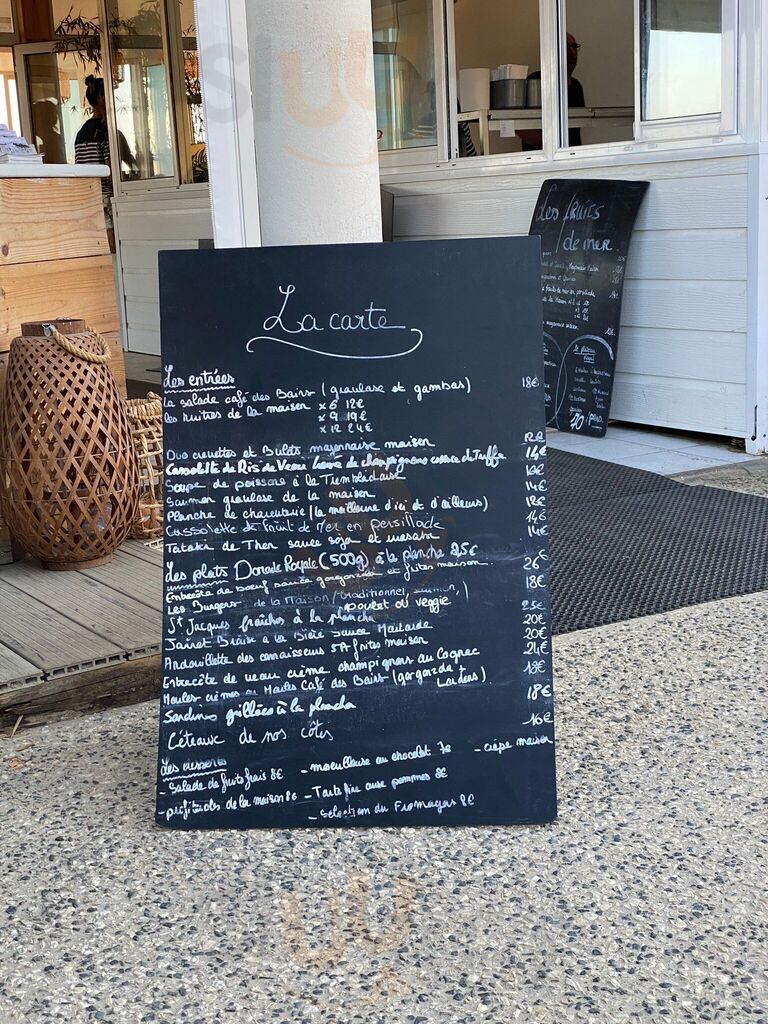 La carte
Les entrées
La salade café des Bains (gravlaxe et gambas) 18€
Les huîtres de la maison x 6 12€
x 9 19€
x 12 24€
Duo crevettes et Bulots mayonnaise maison 12€
Cassolette de Ris de Veau crème de champignons sauce à Truffe 14€
Soupe de poissons à la Trembladaise 10€
Saumon gravlaxe de la maison 14€
Planche de charcuterie (la meilleure d'ici et d'ailleurs) 18€
Cassolette de fruit de Mer en persillade 14€
Tataki de Thon sauce soja et wasabi 14€
Les plats Dorade Royale (500g) à la planche 25€
Entrecôte de boeuf sauce gorgonzola et frites maison 26€
Les Burgers de la Maison (traditionnel, saumon, 18€
poulet ou veggie)
St Jacques fraîches à la plancha 25€
Jarret Braisé à la Bière Sauce 20€
Andouillette des connaisseurs 5A frites maison 20€
Entrecôte de veau crème champignons au Cognac 24€
Moules crèmes ou Moules Café des Bains (gorgonzola + 18€
Lardons)
Sardines grillées à la plancha 18€
Céteaux de nos côtes 16€
Les desserts
- Salade de fruits frais 8€ - moeulleuse au chocolat 7€ - crêpe maison
- profiteroles de la maison 8€ - Tarte fine aux pommes 8€
- Sélection du Fromager 8€
Les fruits
de mer
le plateau
royal
70